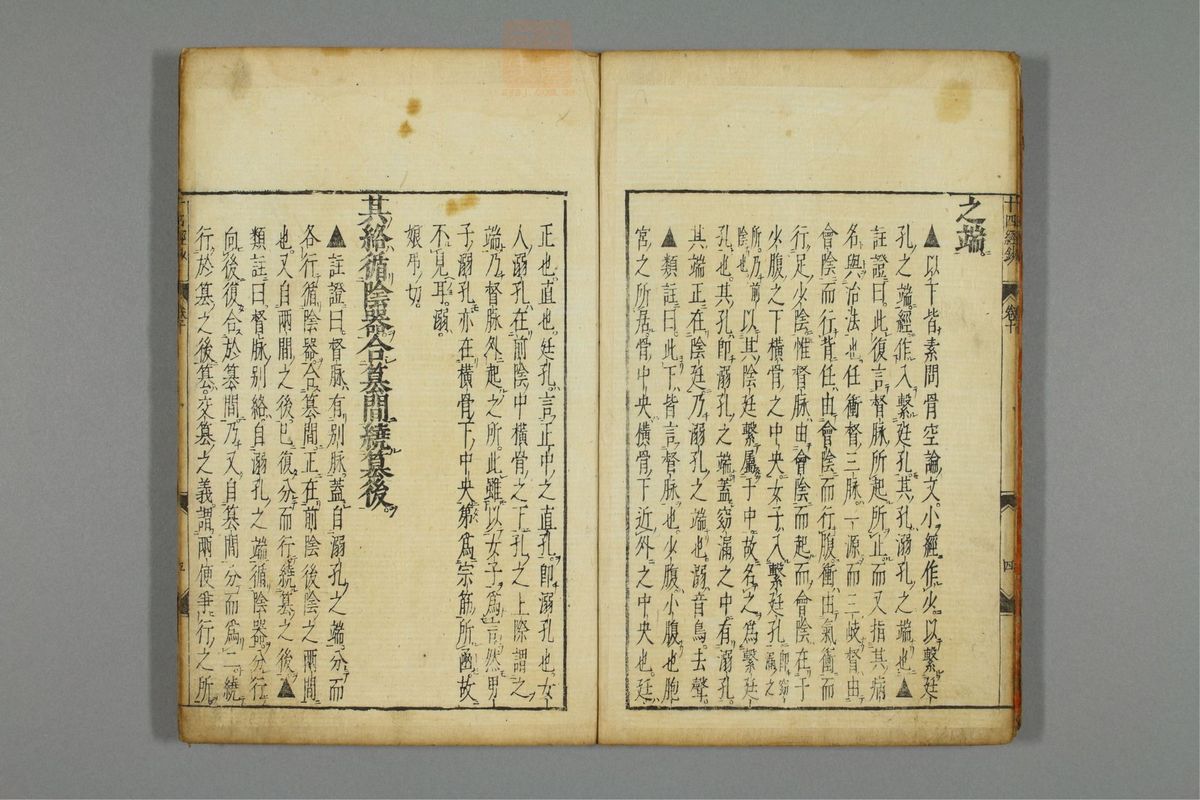 之端
▲以下皆素問骨空論文小經作少以繫廷
孔之端經作入繫廷孔其孔溺孔之端也▲
註證曰此復言督脉所起所止而又指其病
名與治法也任衝督三脉一源而三岐督由
會陰而行背任由會陰而行腹衝由氣衝而
行足少陰惟督脉由會陰而起而會陰在于
少腹之下橫骨之中央女子入繫廷孔即窈漏之
所乃前陰也以其陰廷繫屬于中故名之爲繫廷
孔也其孔即溺孔之端蓋窈漏之中有溺孔
其端正在陰廷乃溺孔之端也溺音鳥去聲
▲類註曰此下皆言督脉也少腹小腹也胞
宮之所居骨中央橫骨下近外之中央也廷
正也直也廷孔言正中之直孔即溺孔也女
人溺孔在前陰中橫骨之下孔之上際謂之
端乃督脉外起之所此雖以女子爲言然男
子溺孔亦在橫骨下中央第爲宗筋所函故
不見耳溺
娘弔切
其絡循陰器合篡間繞篡後
▲註證曰督脉有別脉蓋自溺孔之端分而
各行循陰器合篡間正在前陰後陰之兩間
也又自兩間之後已復分而行繞篡之後▲
類註曰督脉別絡自溺孔之端循陰器分行
向後復合於篡間乃又自篡間分而爲二繞
行於篡之後篡交篡之義謂兩便爭行之所
十四經
卷十
四
卷十
五